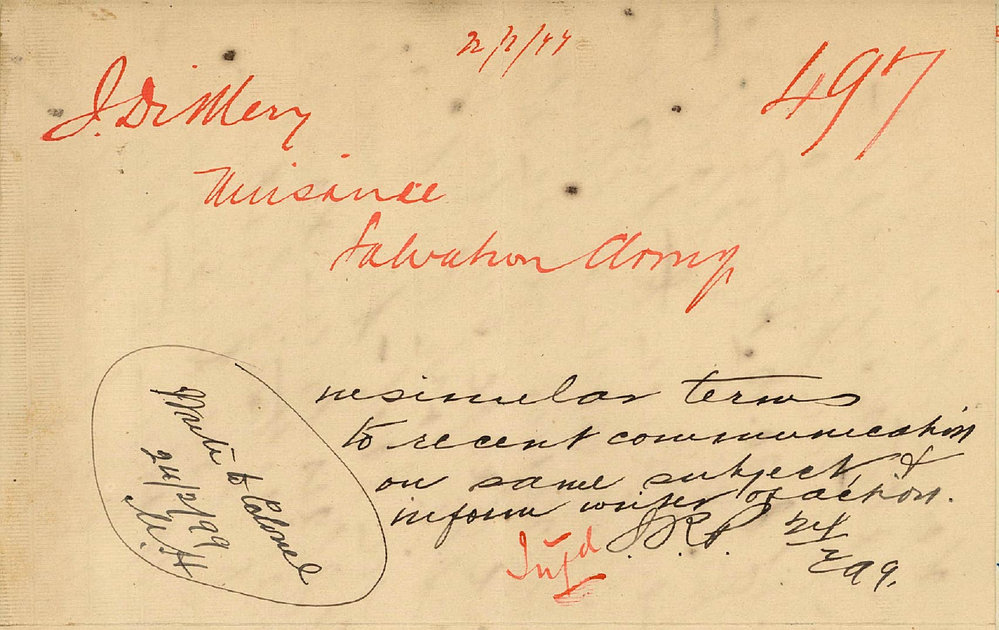 22/2/99
497
J. Dittmery
Nuisance
Salvation Army
in similar terms
to recent communication
on same subject &
inform writer of action.
J.R.P. 24/2 99.
Infd
Write to Colonel
24/2/99